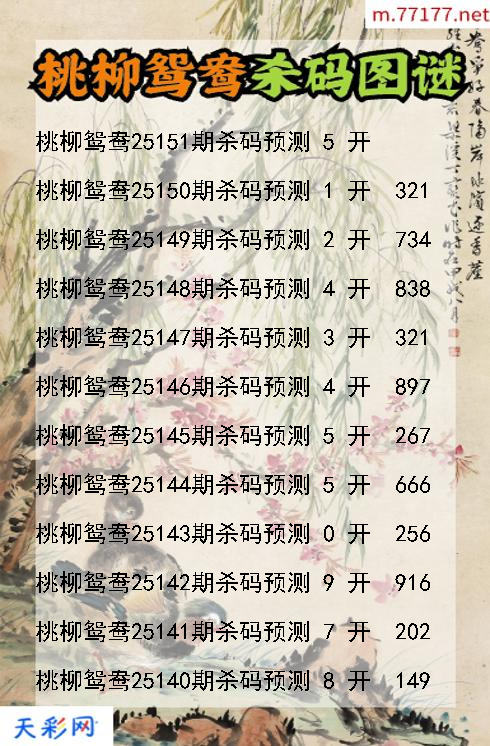 m.77177.net
桃柳鸳鸯杀码图谜
桃柳鸳鸯25151期杀码预测 5 开
桃柳鸳鸯25150期杀码预测 1 开 321
桃柳鸳鸯25149期杀码预测 2 开 734
桃柳鸳鸯25148期杀码预测 4 开 838
桃柳鸳鸯25147期杀码预测 3 开 321
桃柳鸳鸯25146期杀码预测 4 开 897
桃柳鸳鸯25145期杀码预测 5 开 267
桃柳鸳鸯25144期杀码预测 5 开 666
桃柳鸳鸯25143期杀码预测 0 开 256
桃柳鸳鸯25142期杀码预测 9 开 916
桃柳鸳鸯25141期杀码预测 7 开 202
桃柳鸳鸯25140期杀码预测 8 开 149
天彩网